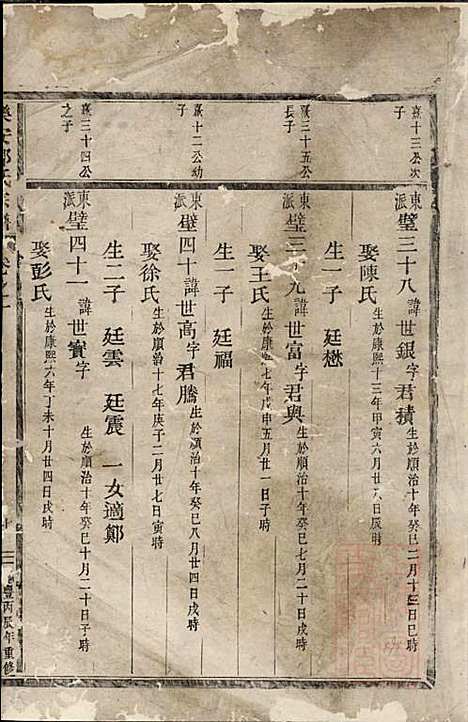 喜十三公次子
東派 璧三十八 諱世銀字君積 生於順治十年癸巳二月十三日巳時
娶陳氏 生於康熙十三年甲寅六月廿八日辰時
生一子 廷懋
喜三十五公長子
東派 璧三十九 諱世富字君與 生於順治十年癸巳七月二十日戌時
娶王氏 生於康熙七年戊申五月廿一日子時
生一子 廷福
喜十二公幼子
東派 璧四十 諱世高字君騰 生於順治十年癸巳八月廿四日戌時
娶徐氏 生於順治十七年庚子二月廿七日寅時
生二子 廷雲 廷震 一女適鄭
喜三十四公之子
東派 璧四十一 諱世實字 生於順治十年癸巳十月二十日子時
娶彭氏 生於康熙六年丁未十月廿四日戌時
氏宗譜
豐丙辰年重修